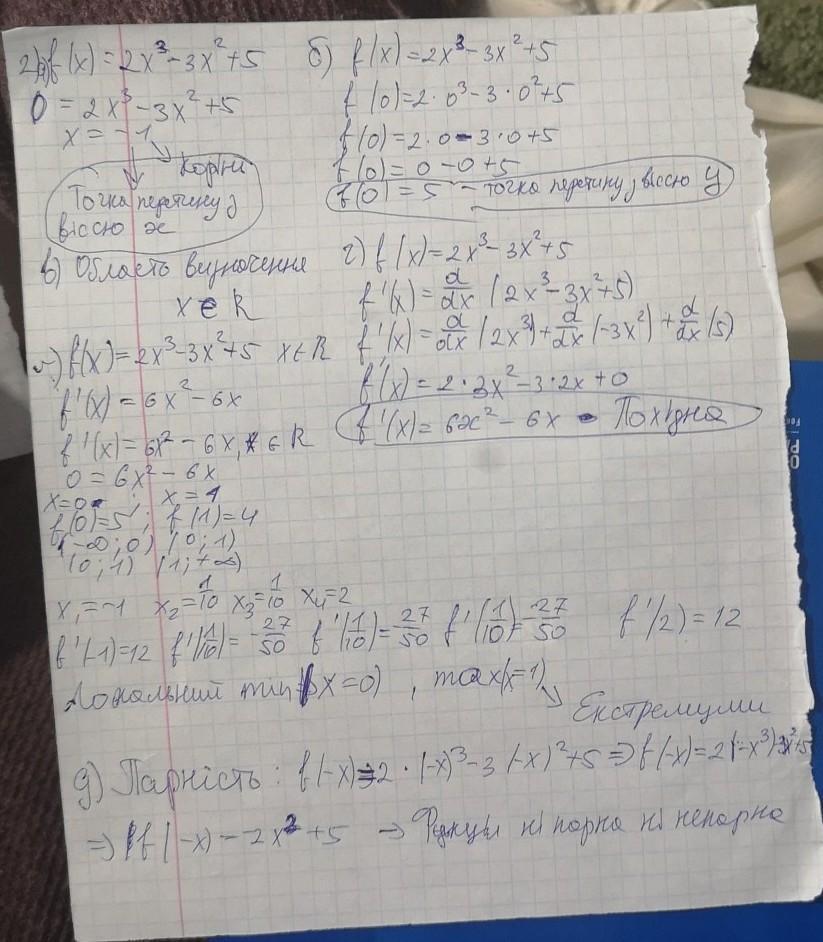 2) а) f(x) = 2x³ - 3x² + 5
0 = 2x³ - 3x² + 5
x = -1
Корні
Точка перетину з
віссю x
б) f(x) = 2x³ - 3x² + 5
f(0) = 2·0³ - 3·0² + 5
f(0) = 2·0 - 3·0 + 5
f(0) = 0 - 0 + 5
f(0) = 5 - точка перетину з віссю y
в) Область визначення
x ∈ R
г) f(x) = 2x³ - 3x² + 5
f'(x) = d/dx (2x³ - 3x² + 5)
f'(x) = d/dx (2x³) + d/dx (-3x²) + d/dx (5)
f'(x) = 2·3x² - 3·2x + 0
f'(x) = 6x² - 6x - Похідна
f(x) = 2x³ - 3x² + 5 x ∈ R
f'(x) = 6x² - 6x
f'(x) = 6x² - 6x, x ∈ R
0 = 6x² - 6x
x = 0 ; x = 1
f(0) = 5 ; f(1) = 4
(-∞; 0) (0; 1)
(0; 1) (1; +∞)
x₁ = -1 x₂ = 1/10 x₃ = 1/10 x₄ = 2
f'(-1) = 12 f'(1/10) = -27/50 f'(1/10) = -27/50 f'(1/10) = -27/50 f'(2) = 12
Локальний min (x = 0) , max (x = 1)
Екстремуми
д) Парність : f(-x) = 2·(-x)³ - 3(-x)² + 5 ⇒ f(-x) = 2(-x³) - 3x² + 5
⇒ f(-x) - 2x² + 5 → Функція ні парна ні непарна